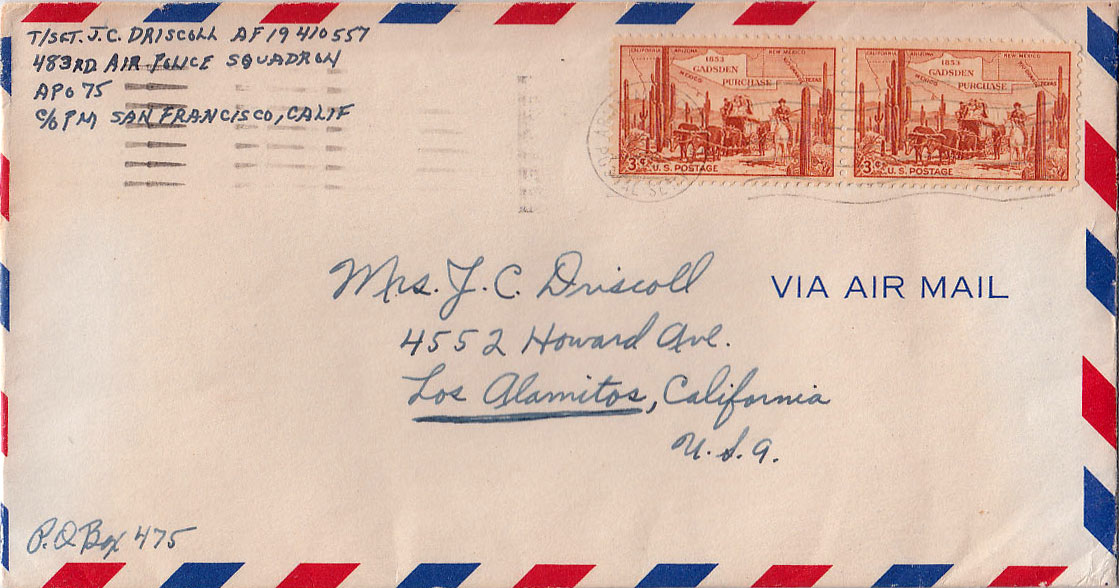 T/SGT. J.C. DRISCOLL AF 19 410 557
483RD AIR POLICE SQUADRON
APO 75
C/O PM SAN FRANCISCO, CALIF
CALIFORNIA ARIZONA NEW MEXICO
1853
GADSDEN
PURCHASE
MEXICO TEXAS
3¢ U.S. POSTAGE
CALIFORNIA ARIZONA NEW MEXICO
1853
GADSDEN
PURCHASE
MEXICO TEXAS
3¢ U.S. POSTAGE
Mrs. J. C. Driscoll
VIA AIR MAIL
4552 Howard Ave.
Los Alamitos, California
U.S.A.
P.O Box 475